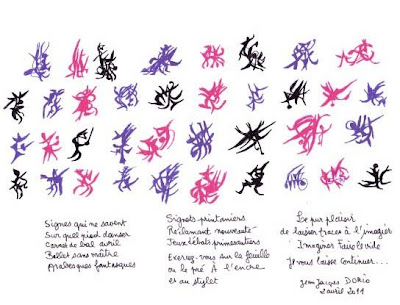 Signes qui ne savent
Sur quel pied danser
Carnet de bal avril
Ballet sans maître
Arabesques fantasques
Signets printaniers
Réclamant nouveauté
Jeux éclats primesautiers
Exercez-vous sur la feuille
ou le pré À l'encre
et au stylet
Le pur plaisir
de laisser traces à l'imagier
Imaginez
Je vous laisse continuer...
Jean Jacques DORIO
2 avril 2011